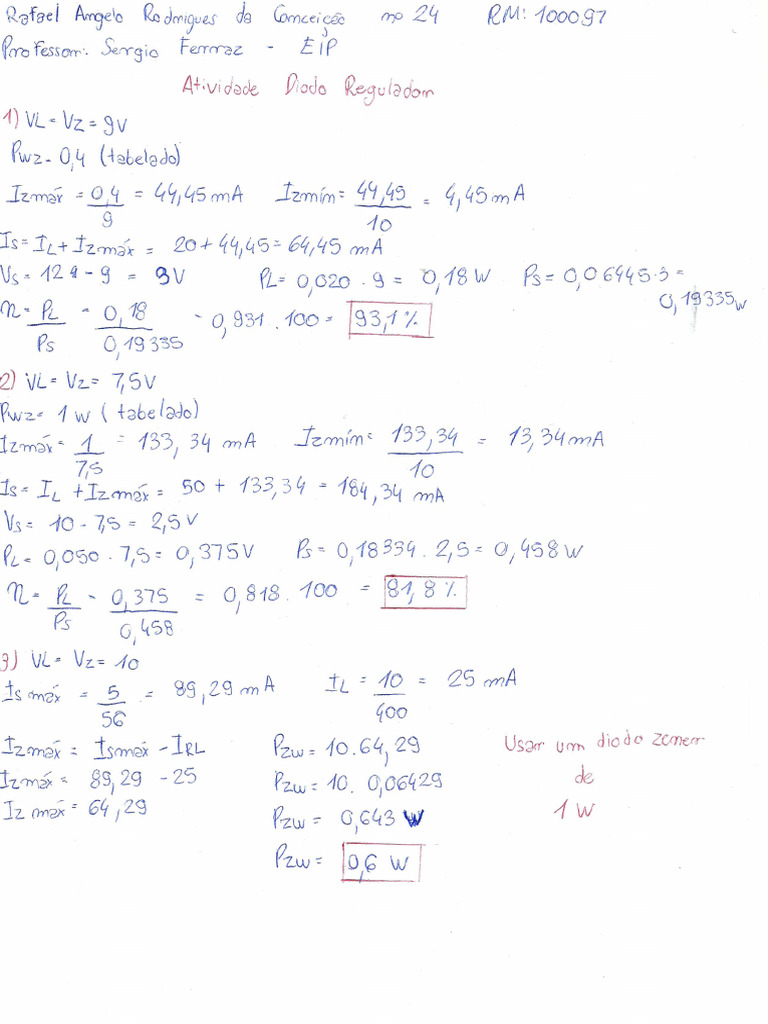 Rafael Angelo Rodrigues da Conceição nº 24 RM: 100097
Professor: Sergio Ferraz - EIP
Atividade Diodo Regulador
1) VL = Vz = 9V
Pwz = 0,4 (tabelado)
Izmáx = 0,4/9 = 44,45 mA Izmín = 44,45/10 = 4,45 mA
Is = IL + Izmáx = 20 + 44,45 = 64,45 mA
Vs = 12 - 9 = 3V PL = 0,020 . 9 = 0,18 W Ps = 0,06445.3 =
0,19335 W
η = PL/Ps = 0,18/0,19335 = 0,931 . 100 = 93,1 %
2) VL = Vz = 7,5V
Pwz = 1 W (tabelado)
Izmáx = 1/7,5 = 133,34 mA Izmín = 133,34/10 = 13,34 mA
Is = IL + Izmáx = 50 + 133,34 = 184,34 mA
Vs = 10 - 7,5 = 2,5 V
PL = 0,050 . 7,5 = 0,375V Ps = 0,18334 . 2,5 = 0,458 W
η = PL/Ps = 0,375/0,458 = 0,818 . 100 = 81,8 %
3) VL = Vz = 10
Is máx = 5/56 = 89,29 mA IL = 10/400 = 25 mA
Izmáx = Ismáx - IRL Pzw = 10.64,29 Usar um diodo zener
Izmáx = 89,29 - 25 Pzw = 10. 0,06429 de
Iz máx = 64,29 Pzw = 0,643 W 1 W
Pzw = 0,6 W